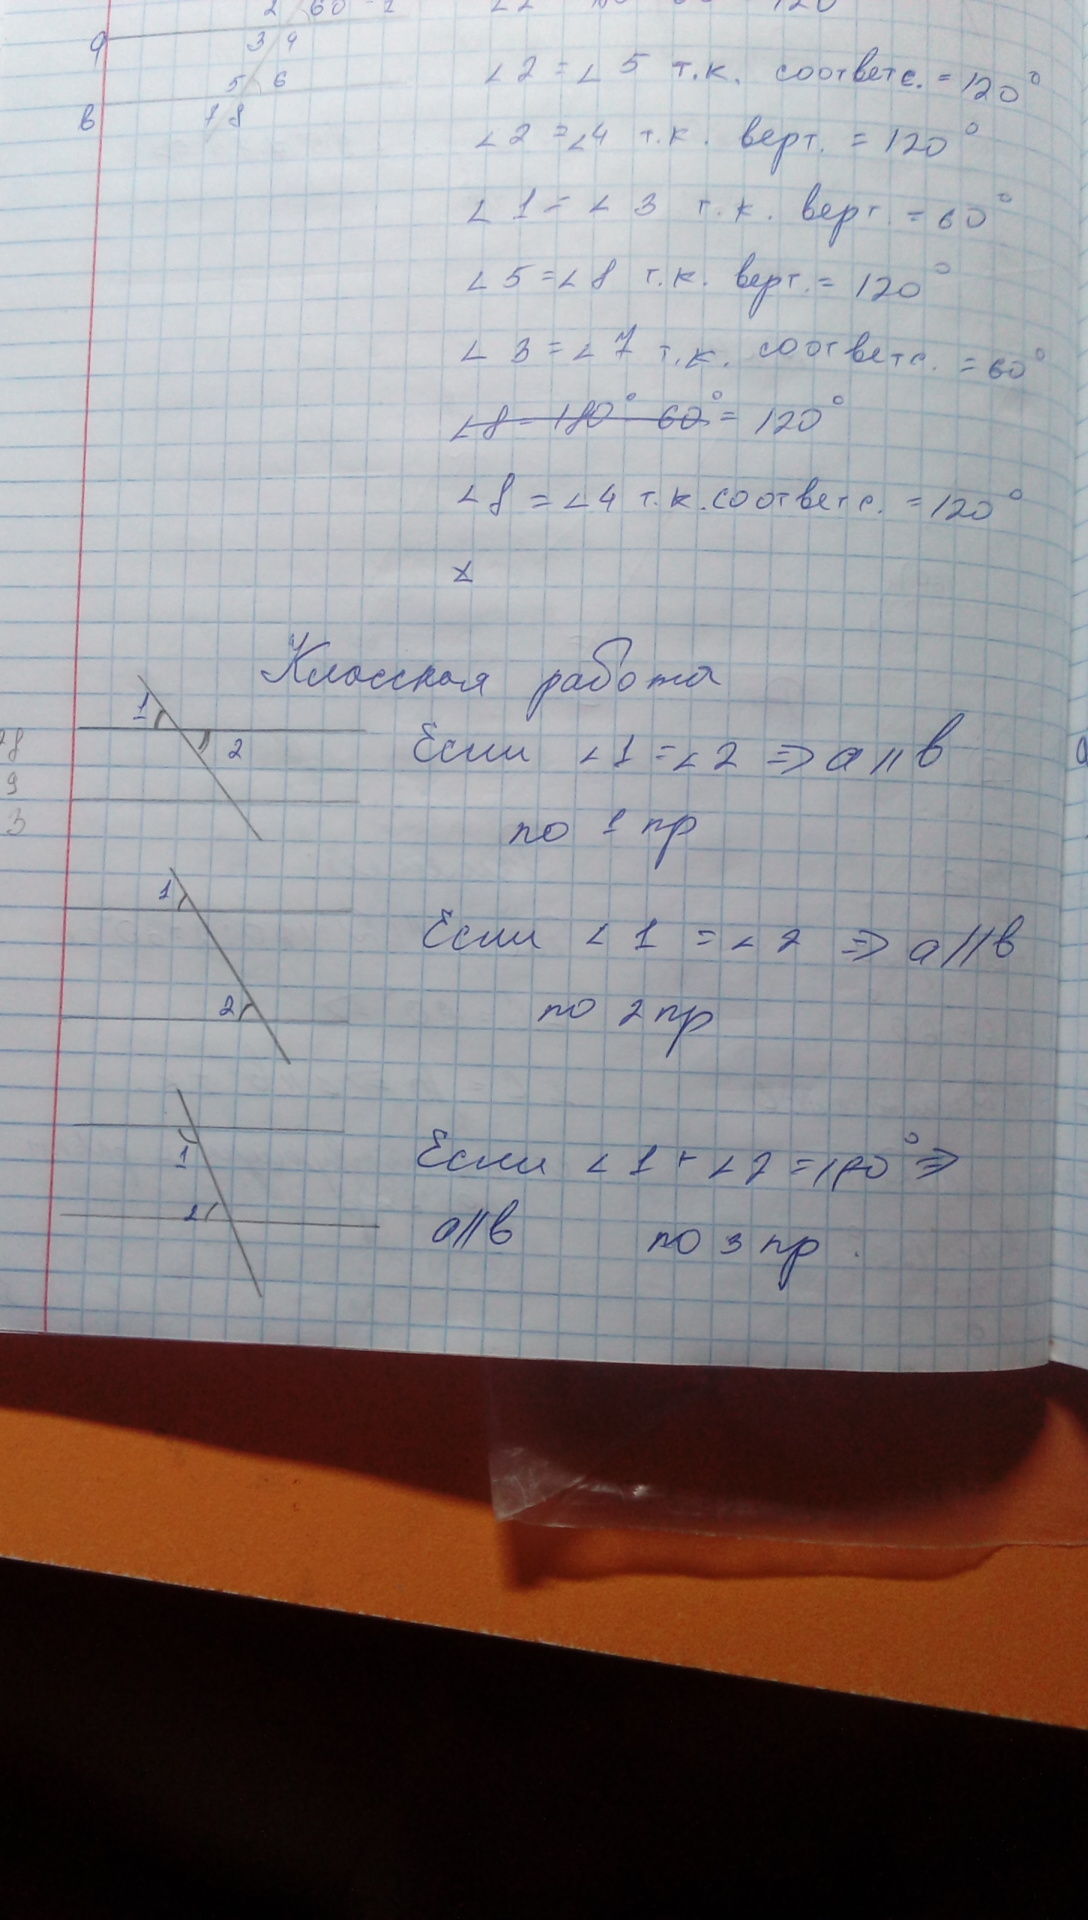 2 60° 1
а
3 4
∠2 = ∠5 т.к. соответс. = 120°
5 6
в
7 8
∠2 = ∠4 т.к. верт. = 120°
∠1 = ∠3 т.к. верт. = 60°
∠5 = ∠8 т.к. верт. = 120°
∠3 = ∠7 т.к. соответс. = 60°
∠8 = 180° - 60° = 120°
∠8 = ∠4 т.к. соответс. = 120°
х
Классная работа
1
2
Если ∠1 = ∠2 ⇒ a || в
по 1 пр
1
Если ∠1 = ∠2 ⇒ a || в
2
по 2 пр
1
Если ∠1 + ∠2 = 180° ⇒
2
a || в по 3 пр.